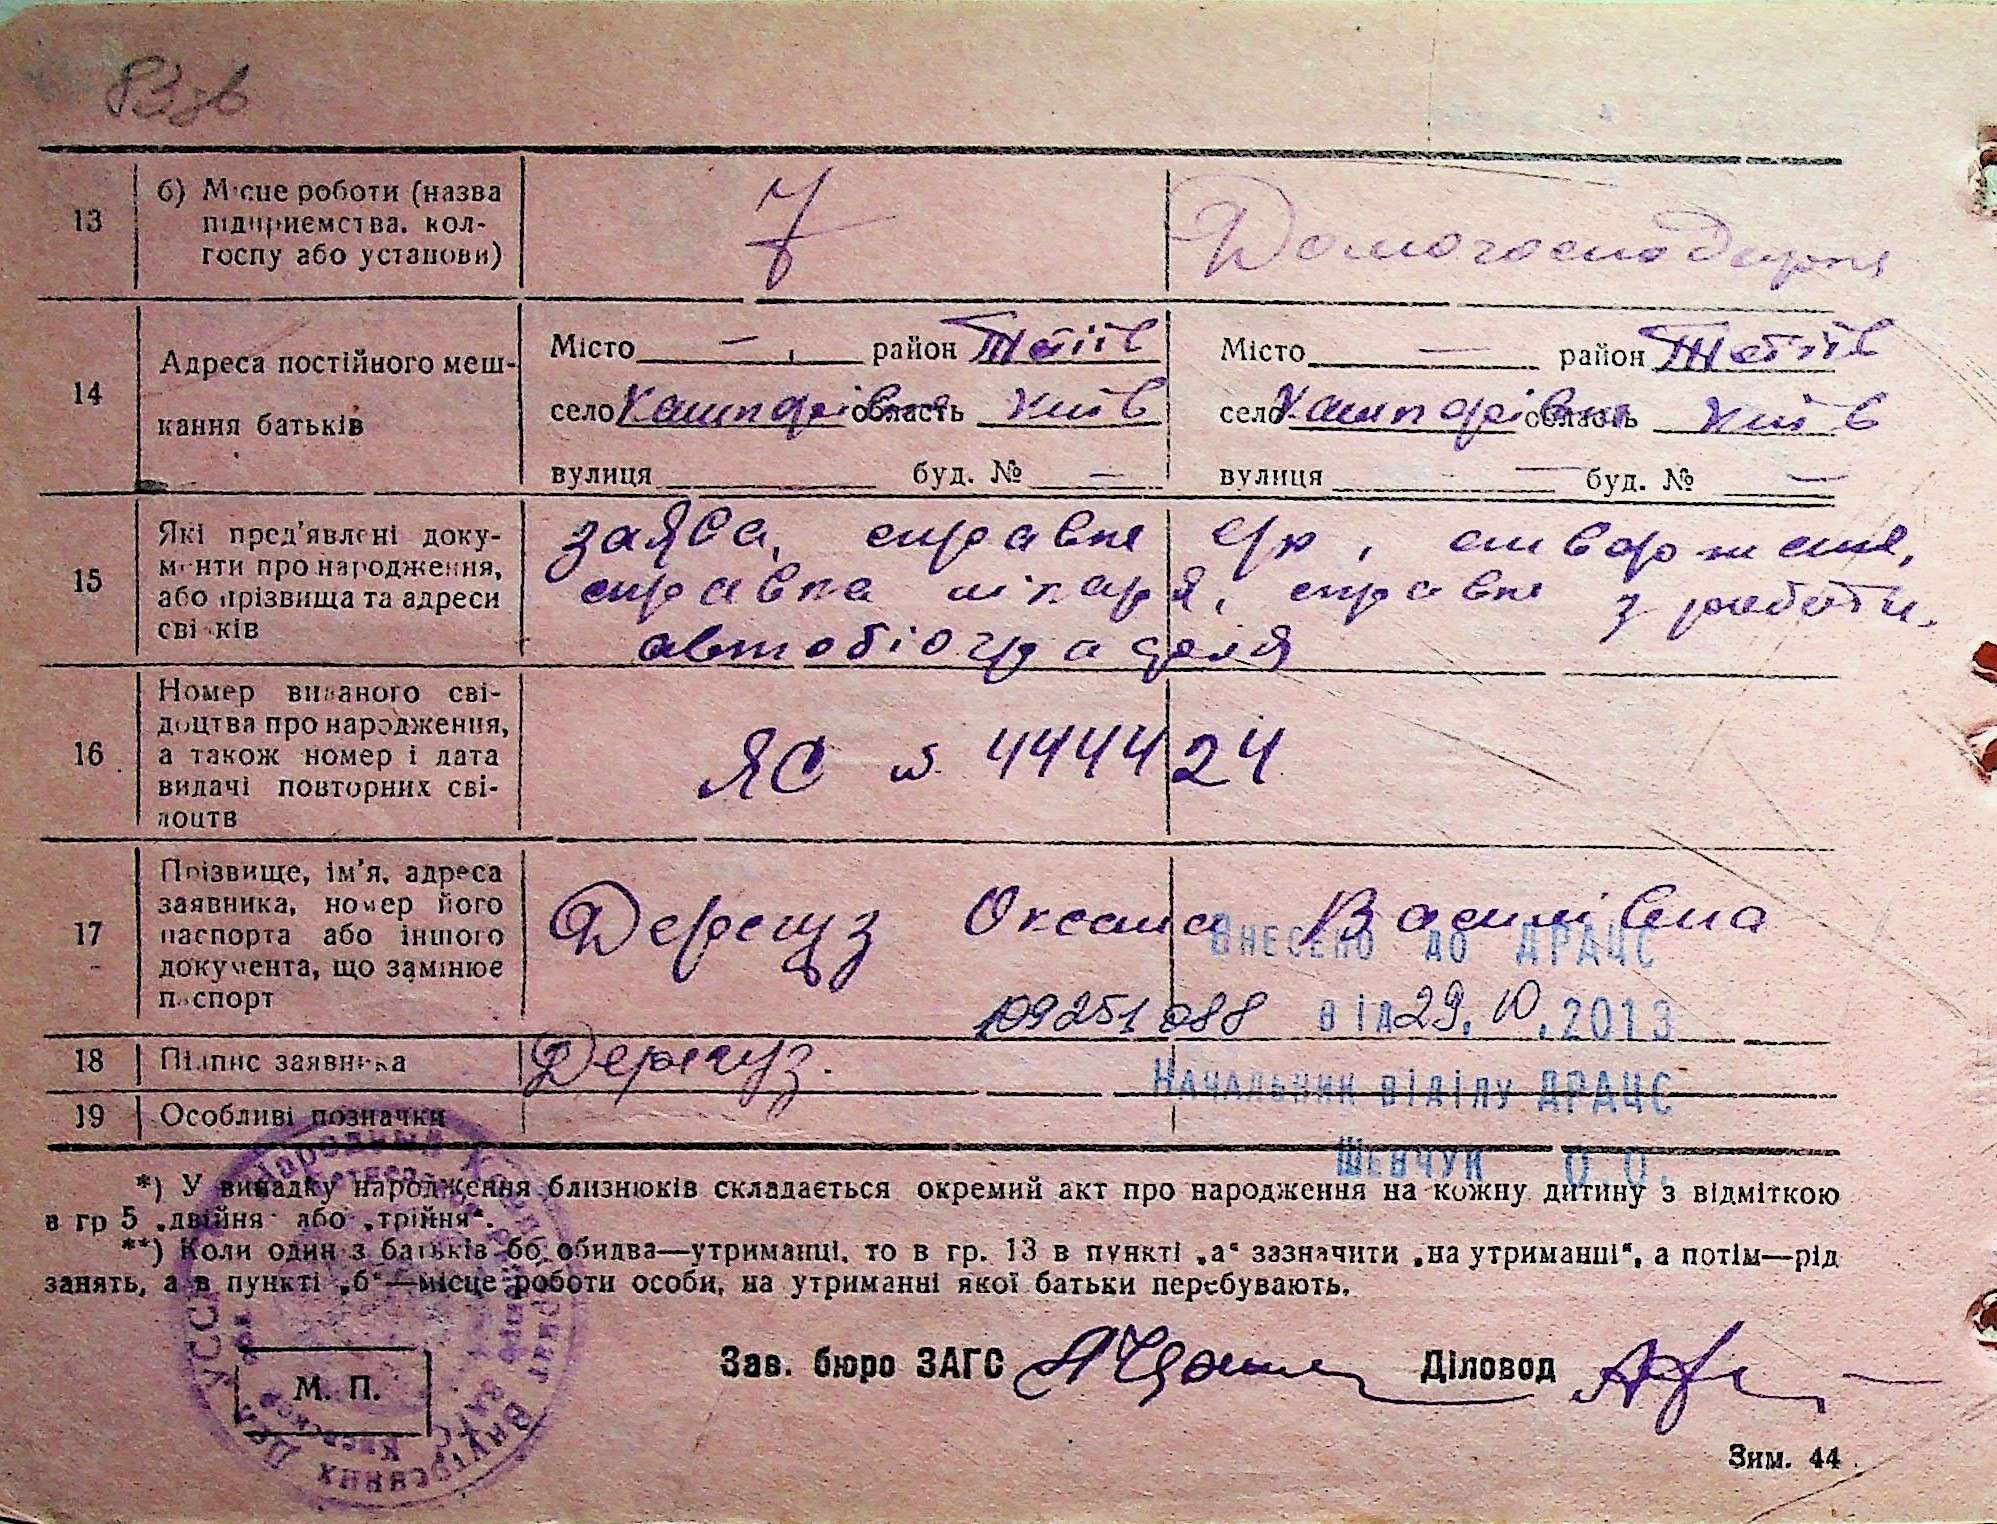 13
б) Місце роботи (назва
підприємства, кол-
госпу або установи)
Домогосподарка
14
Адреса постійного меш-
кання батьків
Місто — , район Тетіїв
село Кашперівка область Київ
вулиця буд. № —
Місто — район Тетіїв
село Кашперівка область Київ
вулиця — буд. № —
15
Які пред'явлені доку-
менти про народження,
або прізвища та адреси
свідків
заява, справка с/р, ствердження,
справка лікаря, справка з роботи,
автобіографія
16
Номер виданого сві-
доцтва про народження,
а також номер і дата
видачі повторних сві-
доцтв
ЯС № 444424
17
Прізвище, ім'я, адреса
заявника, номер його
паспорта або іншого
документа, що замінює
паспорт
Дерегуз Оксана Василівна
Внесено до ДРАЦС
109251088 від 29.10.2013
18
Підпис заявника
Дерегуз.
Начальник відділу ДРАЦС
19
Особливі позначки
Шевчук О.О.
*) У випадку народження близнюків складається окремий акт про народження на кожну дитину з відміткою
в гр 5 „двійня" або „трійня".
**) Коли один з батьків бо обидва—утриманці, то в гр. 13 в пункті „а" зазначити „на утриманні", а потім—рід
занять, а в пункті „б"—місце роботи особи, на утриманні якої батьки перебувають.
М. П.
УССР Народный Комиссариат Внутренних Дел
Киевской
Зав. бюро ЗАГС
Діловод
Зим. 44